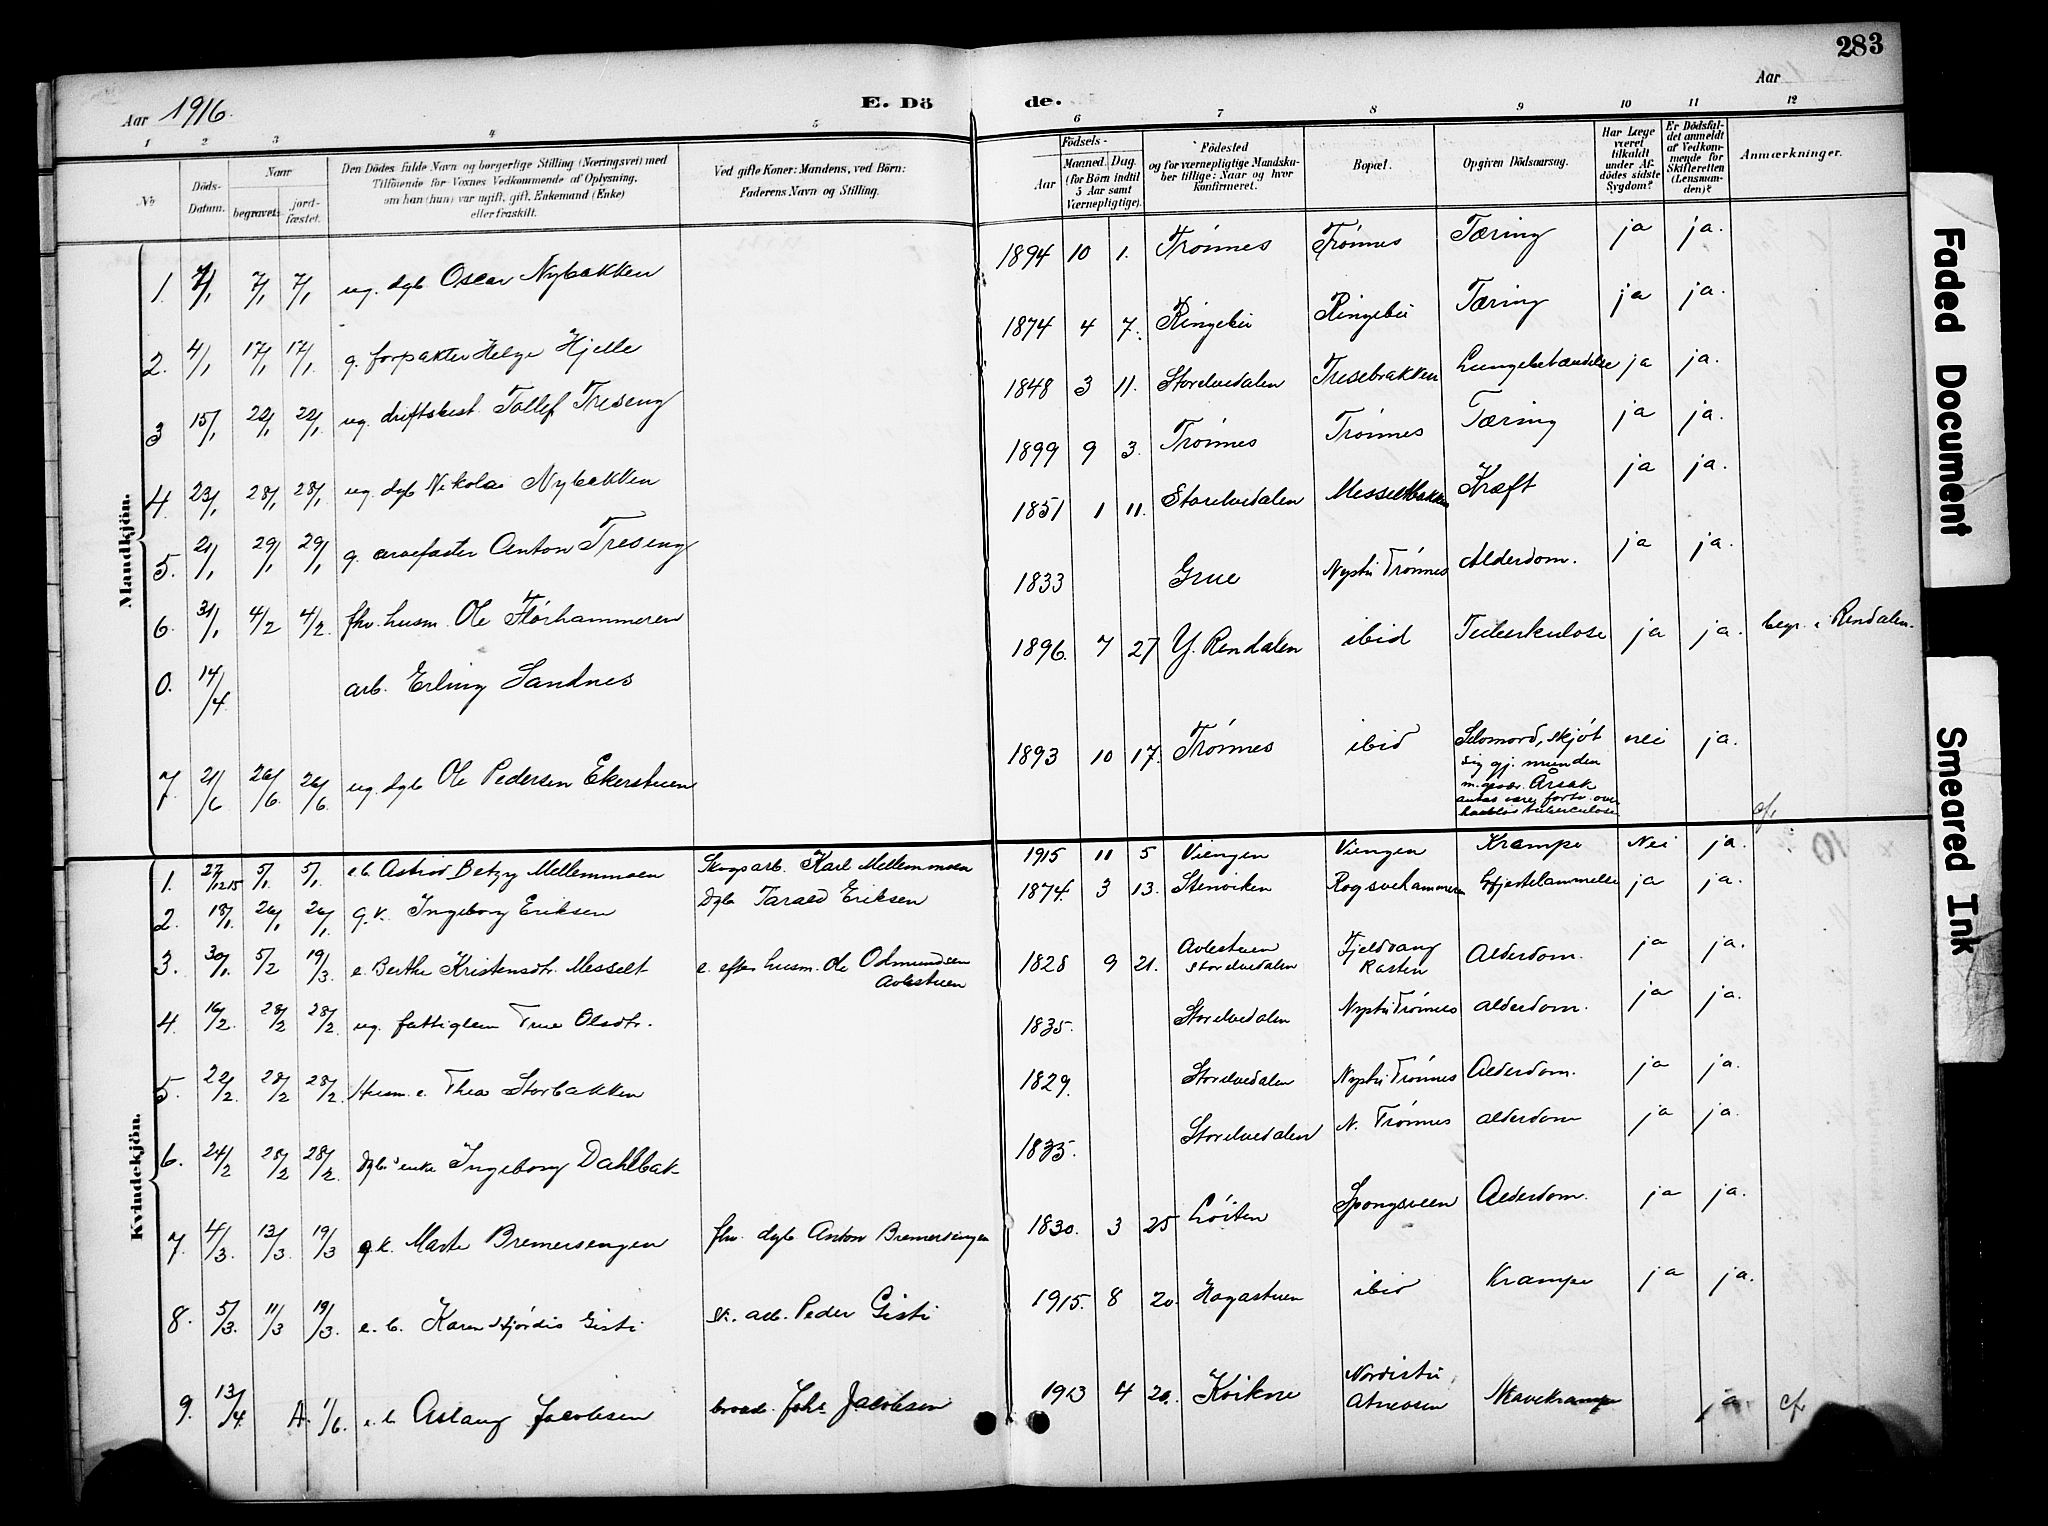 283
Aar 1916. E. Döde. Aar
1 2 3 4 5 6 7 8 9 10 11 12
No
Döds-Datum.
Naar
begravet.
jordfæstet.
Den Dödes fulde Navn og borgerlige Stilling (Næringsvei) med
Tilföiende for Voxnes Vedkommende af Oplysning,
om han (hun) var ugift, gift, Enkemand (Enke)
eller fraskilt.
Ved gifte Koner: Mandens, ved Börn:
Faderens Navn og Stilling.
Födsels-
Aar
Maaned. Dag.
(for Börn indtil
5 Aar samt
Værnepligtige).
Födested
og for værnepligtige Mandskaber tillige: Naar og hvor
konfirmeret.
Bopæl.
Opgiven Dödsaarsag.
Har Læge
været
tilkaldt
under Afdödes sidste
Sygdom?
Er Dödsfaldet anmeldt
af Vedkommende for
Skifteretten
(Lensmanden)?
Anmærkninger.
Mandkjön.
1. 7/1 7/1 ug. dgb Oscar Nybakken 1894 10 1. Trönnes Trönnes Tæring ja ja.
2. 4/1 17/1 17/1. g. forpakter Helge Hjelle 1874 4 7. Ringebu Ringebu Tæring ja ja.
3 15/1 22/1 22/1 ug. driftsbest. Tollef Treseng 1848 3 11. Storelvedalen Tresebrakken Lungebetændelse ja ja.
4. 23/1 28/1 28/1 ug. dgb Nikolai Nybakken 1899 9 3. Trönnes Trönnes Tæring ja ja.
5. 21/1 29/1 29/1 g. arvefæster Anton Treseng 1851 1 11. Storelvedalen Messeltbakken Kræft ja ja.
6. 31/1 4/2 4/2. fhv. husm. Ole Flörhammeren 1833 Grue Nystu Trönnes Alderdom. ja ja.
0. 14/4 arb. Erling Sandnes 1896. 7 27 Y. Rendalen ibid Tuberkulose ja ja. begr. i Rendalen.
7. 21/6 26/6. 26/6. ug. dgb Ole Pedersen Ekerstuen 1893 10 17. Trönnes ibid Selvmord, skjöt nei ja.
sig gj. munden
m. gevær. Årsak
antas være frykt over
haablös tuberculose cf.
Kvindekjön.
1. 27/12 15 5/1. 5/1. e.b. Astrid Betzy Mellemmoen Skogsarb. Karl Mellemmoen 1915 11 5 Viengen Viengen Krampe Nei ja.
2. 18/1. 26/1 26/1. g.k. Ingeborg Eriksen Dgb Tarald Eriksen 1874. 3 13. Stenviken Rogsvehammeren Hjertelammelse ja ja.
3. 30/1 5/2 19/3. e. Berthe Kristensdtr. Messelt e. efter husm. Ole Odmundsen 1828 9 21. Avlestuen Fjeldvang Alderdom. ja ja.
Avlestuen Storelvedalen Rasten
4. 16/2. 28/2 28/2. ug. fattiglem True Olsdtr. 1835. Storelvedalen Nystu Trönnes Alderdom. ja ja.
5. 22/2. 28/2 28/2. Husm. e. Thea Storbakken 1829. Storelvedalen Nystu Trönnes Alderdom. ja ja.
6. 24/2 28/2 28/2. Dgb's enke Ingeborg Dahlbak 1835. Storelvedalen N. Trönnes Alderdom ja ja.
7. 4/3. 13/3. 19/3 g.k. Marte Bremersengen fhv. dgb Anton Bremersengen 1830. 3 25 Löiten Spongsveen Alderdom. ja ja.
8. 5/3. 11/3 19/3. e.b. Karen Hjördis Gisti arb. Peder Gisti 1915. 8 20. Hagastuen ibid Krampe ja ja.
9. 13/4. A. 1/6. e.b Aslaug Jacobsen Joh. Jacobsen 1913 4 20. Kvikne Nordistu Mavekrampe ja cf.
Atneosen
Faded Document
Smeared Ink